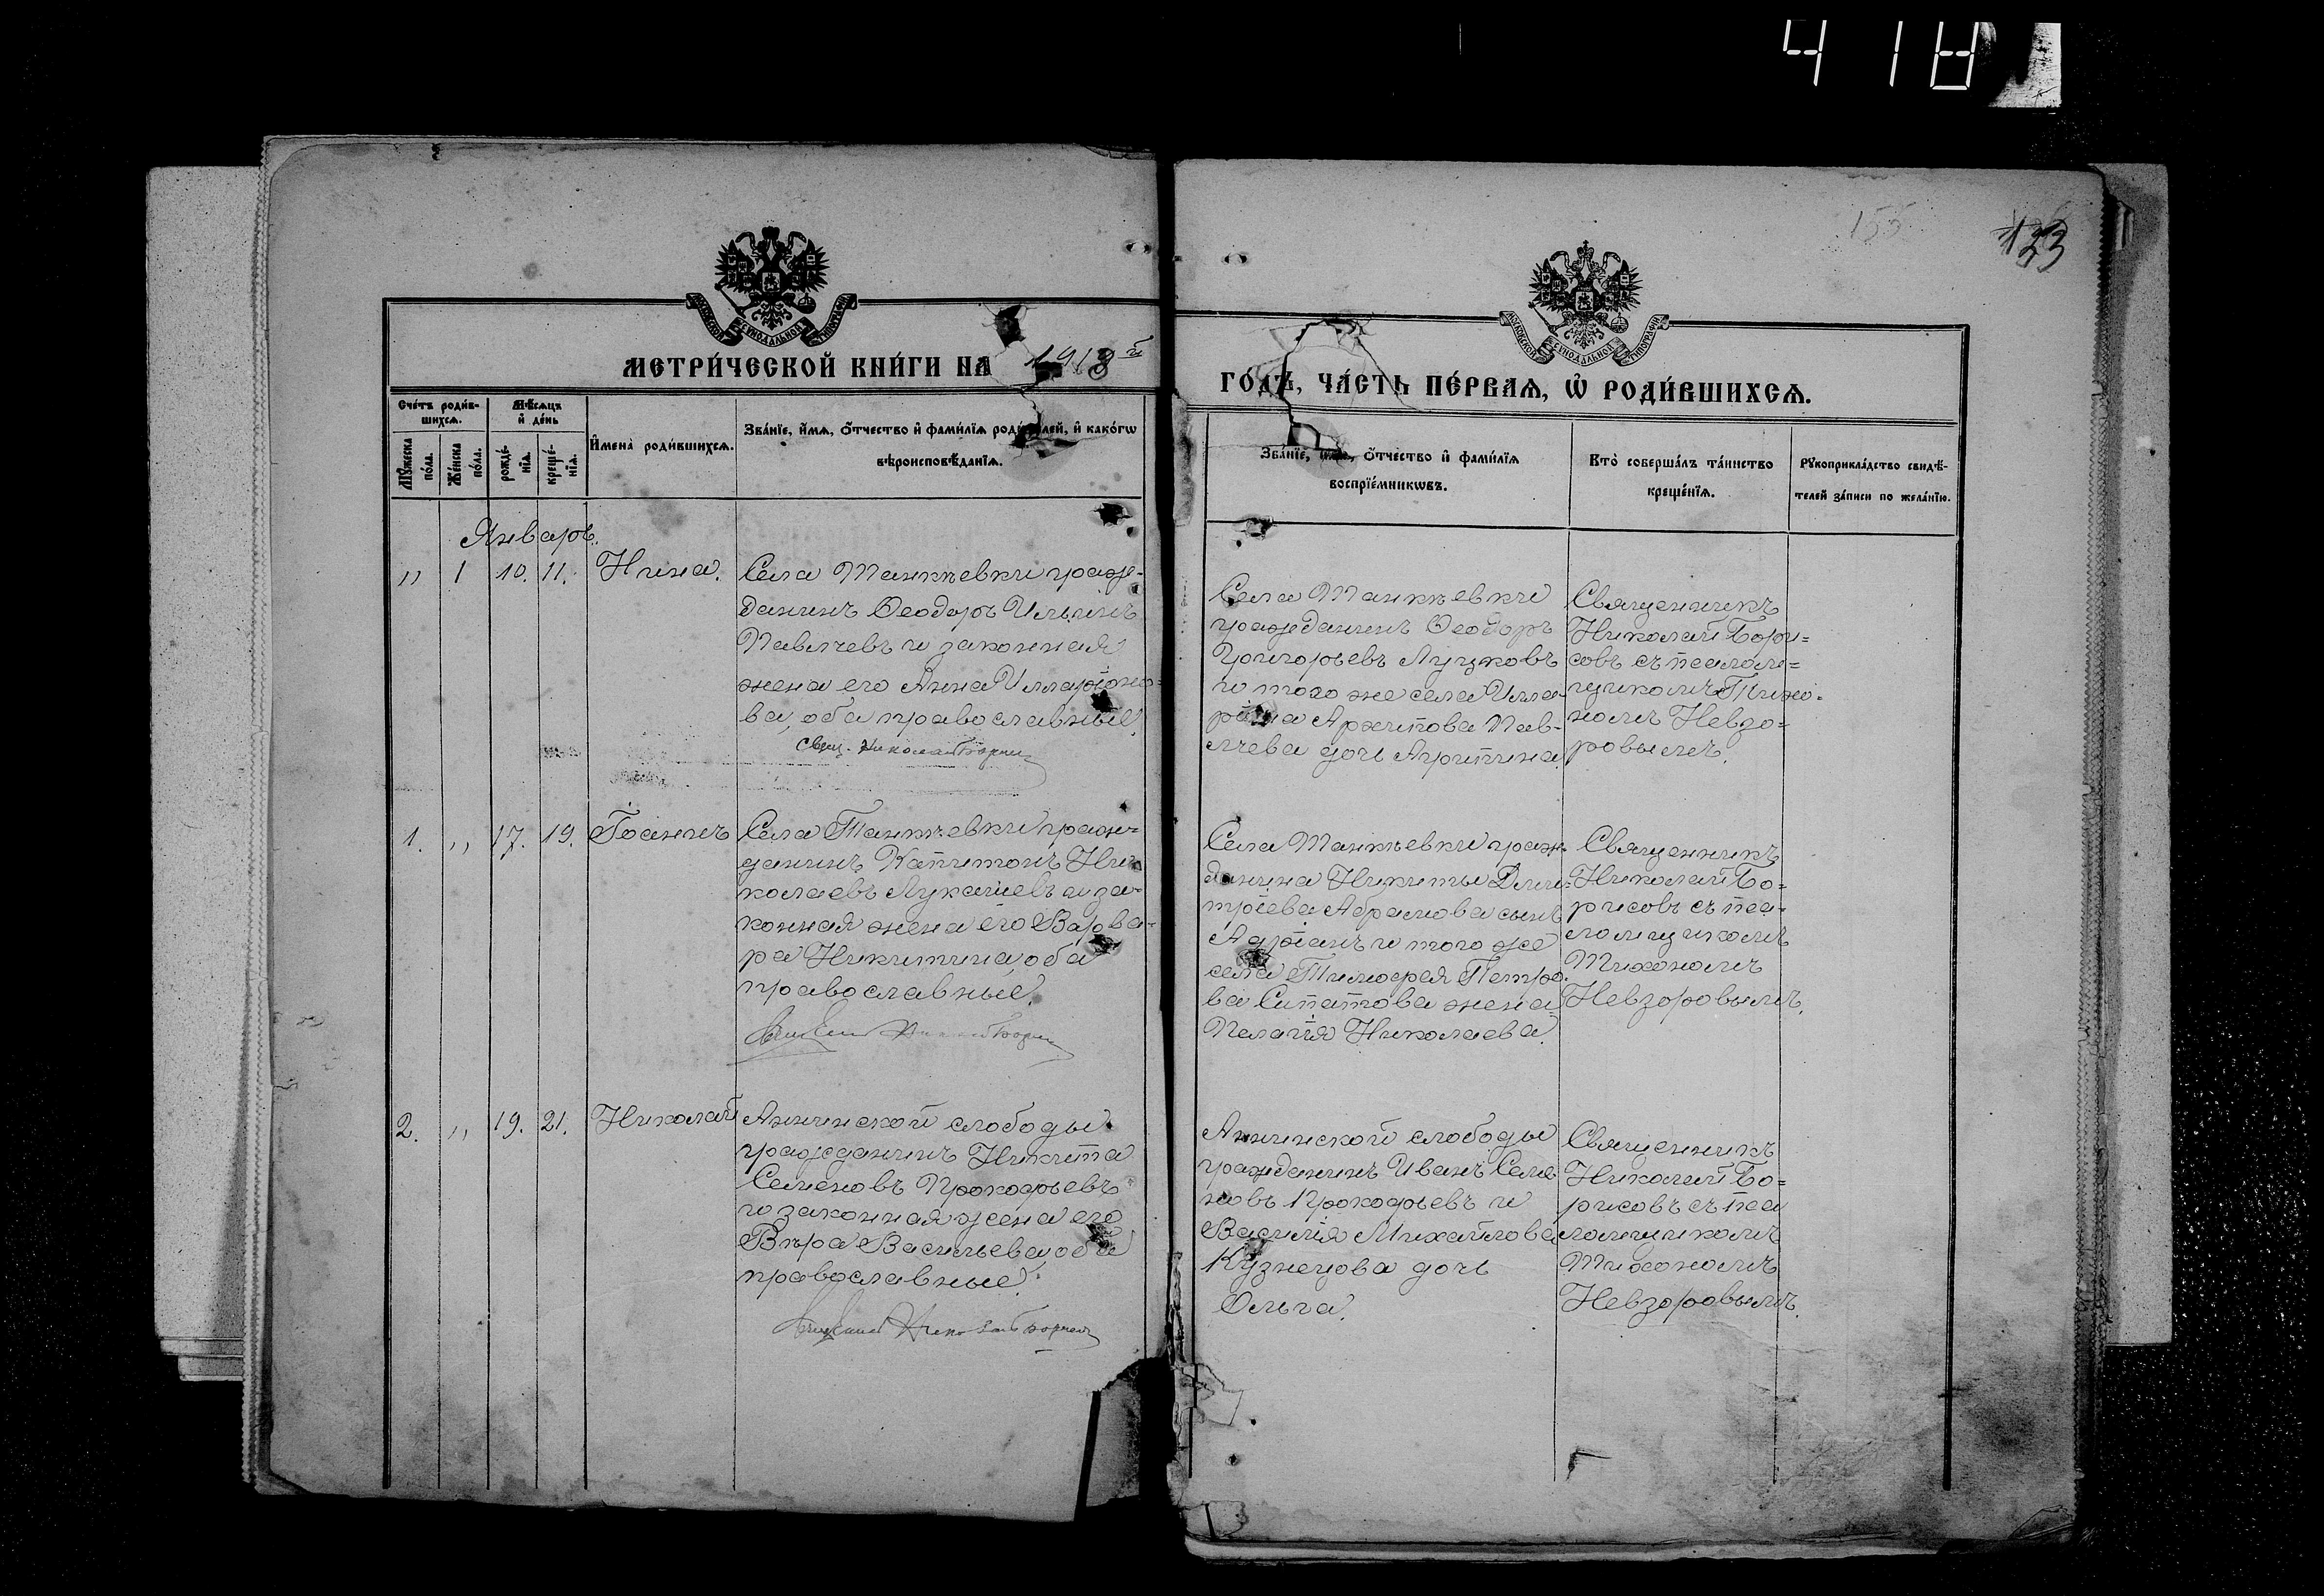 418
155
123
МЕТРИ́ЧЕСКОЙ КНИ́ГИ НА 1918й
ГО́ДЪ, ЧА́СТЬ ПЕ́РВАЯ, Ѿ РОДИ́ВШИХСЯ.
Сче́тъ роди́в-
шихся.
Мѣ́сяцъ
и҆ де́нь
Мꙋ́жеска
по́ла.
Же́нска
по́ла.
рожде́-
нїѧ.
креще́-
нїѧ.
И҆мена̀ роди́вшихся.
Зва́нїе, и҆́мѧ, ѻ҆́тчество и҆ фами́лїѧ роди́телей, и҆ како́гѡ
вѣроисповѣ́данїѧ.
Зва́нїе, и҆́мѧ, ѻ҆́тчество и҆ фами́лїѧ
воспрїе́мникѡвъ.
Кто̀ соверша́лъ та́инство
креще́нїѧ.
Рꙋкоприкла́дство свидѣ́-
телей за́писи по жела́нїю.
Январь.
„ 1 10. 11. Нина.
Села Танкѣевки граж-
данинъ Ѳеодоръ Ильинъ
Павлчевъ и законная
жена его Анна Илларіоно-
ва, оба православные.
Свящ. Николай Борисовъ
Села Танкѣевки
гражданинъ Ѳеодоръ
Григорьевъ Луцковъ
и того же села Илла-
ріона Архипова Пав-
лчева дочь Агрипина.
Священникъ
Николай Бори=
совъ съ псалом=
щикомъ Тихо-
номъ Невзо=
ровымъ.
1. „ 17. 19. Іоаннъ
Села Танкѣевки граж-
данинъ Капитонъ Ни-
колаевъ Лукачевъ и за-
конная жена его Варва-
ра Никитина, оба
православные.
Священникъ Николай Борисовъ
Села Танкѣевки граж-
данина Никиты Дми-
тріева Абрамова сынъ
Адріанъ и того же
села Тимофея Петро-
ва Сипатова жена
Пелагія Николаева.
Священникъ
Николай Бо=
рисовъ съ пса-
ломщикомъ
Тихономъ
Невзоровымъ.
2. „ 19. 21. Николай
Аннинской слободы
гражданинъ Никита
Семеновъ Прокофьевъ
и законная жена его
Вѣра Васильева, оба
православные.
Священникъ Николай Борисовъ
Аннинской слободы
гражданинъ Иванъ Семе
новъ Прокофьевъ и
Василія Михайлова
Кузнецова дочь
Ольга.
Священникъ
Николай Бо=
рисовъ съ пса
ломщикомъ
Тихономъ
Невзоровымъ.